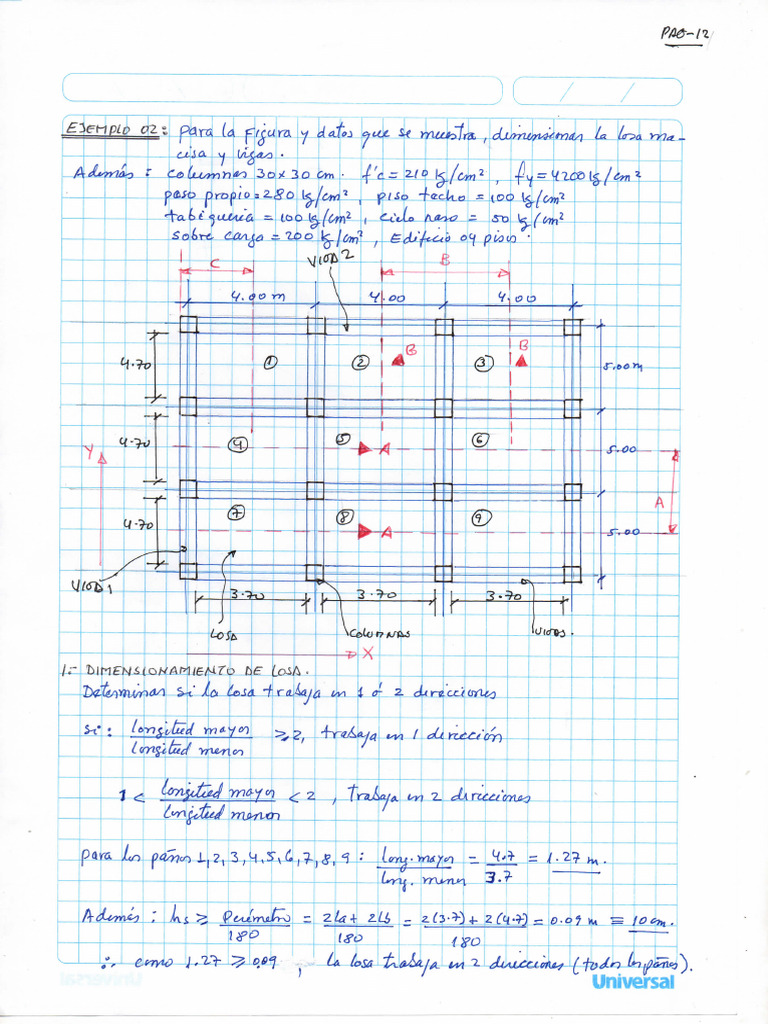 PAG-12
EJEMPLO 02: para la figura y datos que se muestra, dimensionar la losa ma-
cisa y vigas.
Además: columnas 30x30 cm. f'c = 210 kg/cm², fy = 4200 kg/cm²
peso propio = 280 kg/cm², piso techo = 100 kg/cm²
tabiquería = 100 kg/cm², cielo raso = 50 kg/cm²
sobre carga = 200 kg/cm², Edificio 04 pisos.
C VIGA 2 B
4.00 m 4.00 4.00
4.70 1 2 B 3 B 5.00 m
4.70 4 5 A 6 5.00
Y A
4.70 7 8 A 9 5.00
VIGA 1
3.70 3.70 3.70
LOSA COLUMNAS VIGAS.
X
1.- DIMENSIONAMIENTO DE LOSA.
Determinar si la losa trabaja en 1 ó 2 direcciones
si: longitud mayor / longitud menor ≥ 2, trabaja en 1 dirección
1 < longitud mayor / longitud menor < 2, trabaja en 2 direcciones
para los paños 1,2,3,4,5,6,7,8,9: long. mayor / long. menor = 4.7 / 3.7 = 1.27 m.
Además: hs ≥ Perímetro / 180 = 2La + 2Lb / 180 = 2(3.7) + 2(4.7) / 180 = 0.09 m ≡ 10 cm.
∴ como 1.27 ≥ 0.09, la losa trabaja en 2 direcciones (todos los paños).
Universal